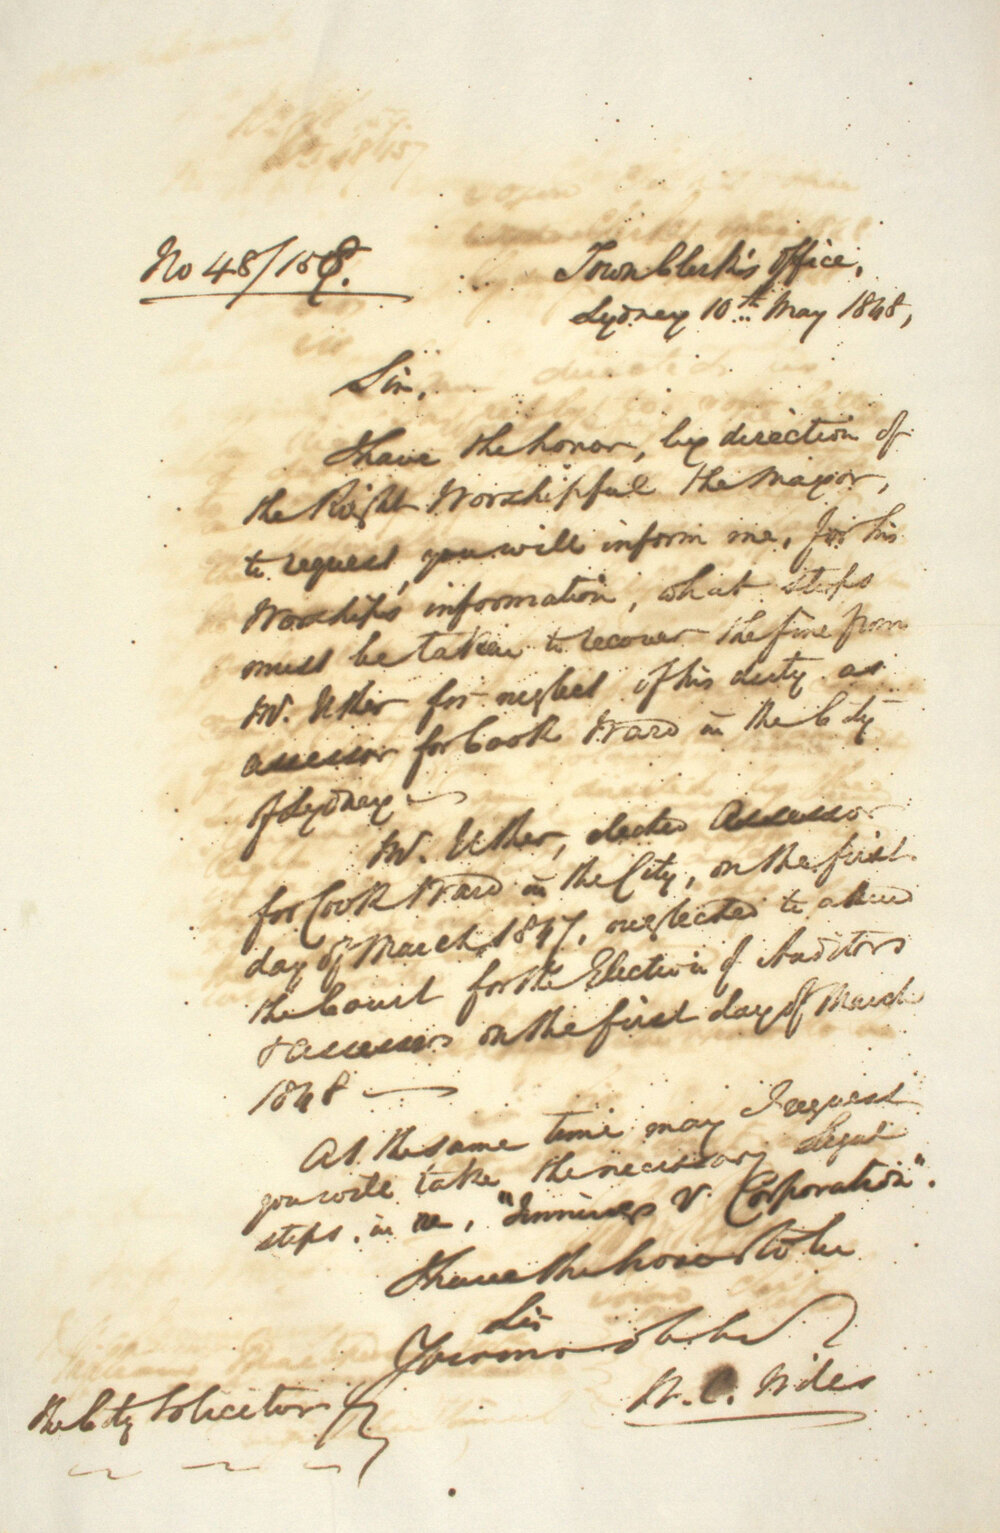 No 48/158.
Town Clerk's Office,
Sydney 10th May 1848,
Sir,
I have the honor, by direction of
the Right Worshipful the Mayor,
to request you will inform me, for his
Worship's information, what steps
must be taken to recover the fine from
Mr. Uther for neglect of his duty as
assessor for Cook Ward in the City
of Sydney —
Mr. Uther, elected Assessor
for Cook Ward in the City, on the first
day of March 1847, neglected to attend
the Court for the Election of Auditors
& assessors on the first day of March
1848 —
At the same time may I request
you will take the necessary legal
steps, in re, " v. Corporation".
I have the honor to be
Sir
Your
The City Solicitor